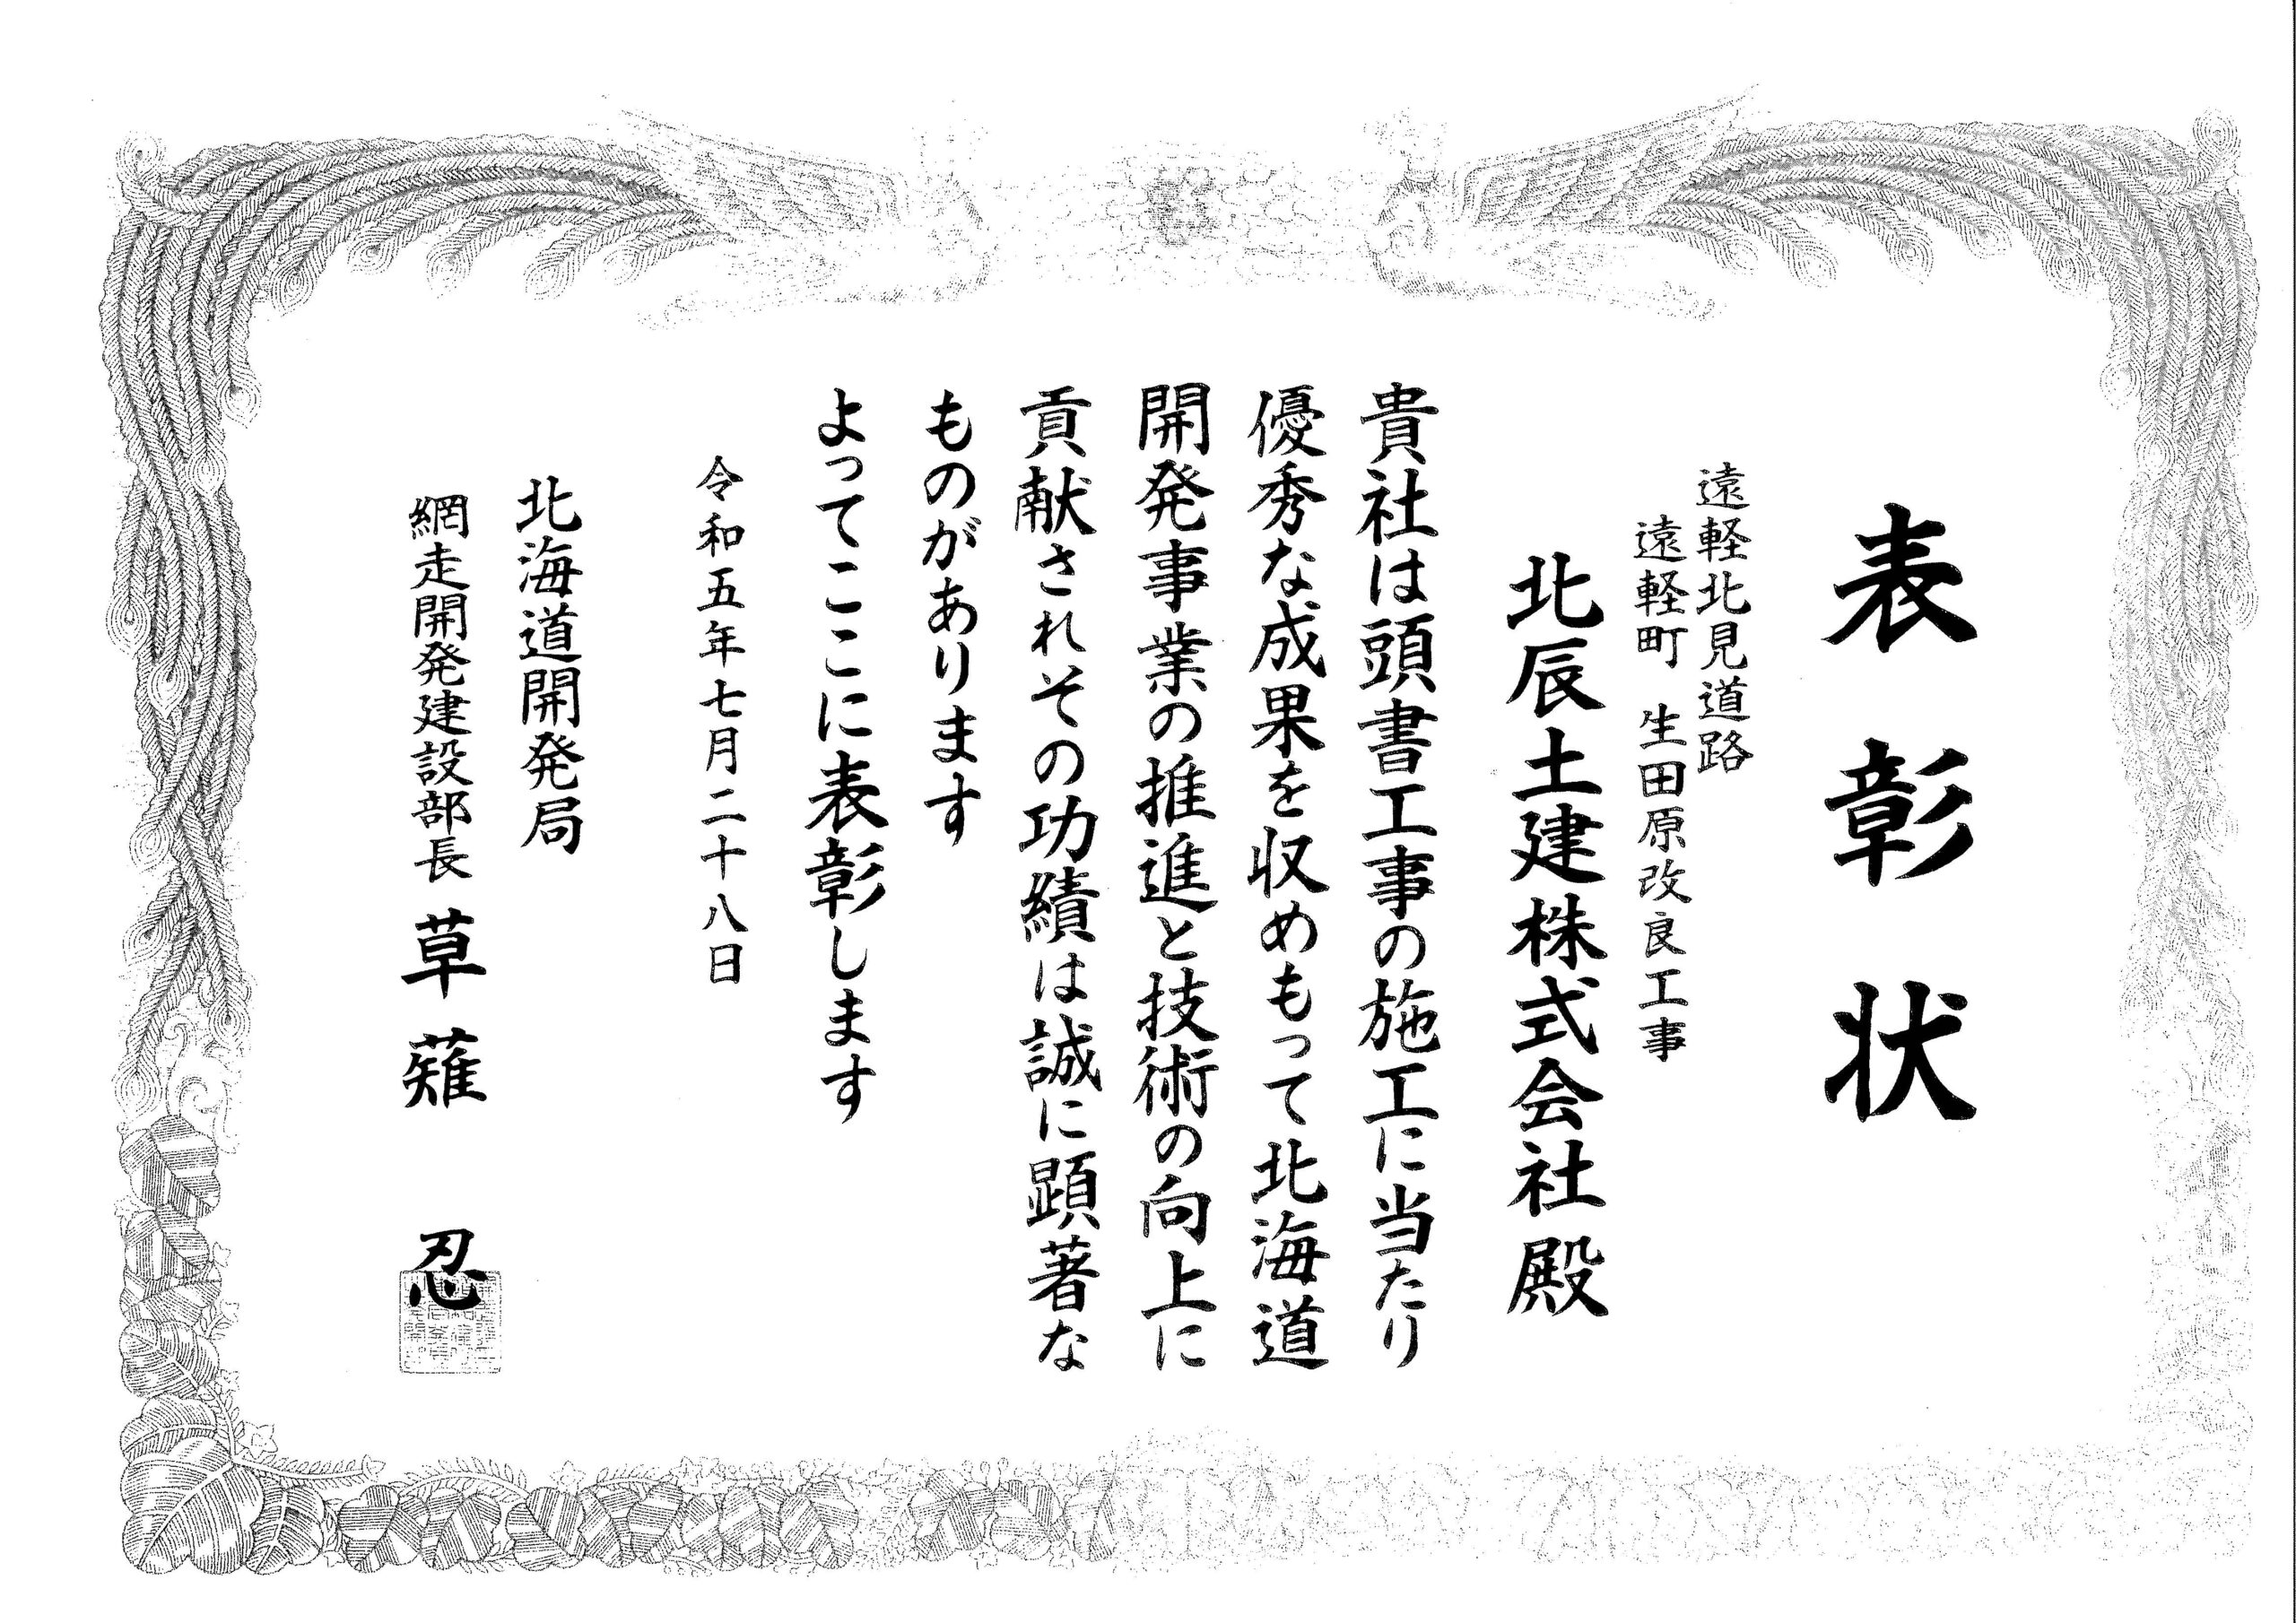 表彰状
遠軽北見道路
遠軽町　生田原改良工事
北辰土建株式会社殿
貴社は頭書工事の施工に当たり
優秀な成果を収めもって北海道
開発事業の推進と技術の向上に
貢献されその功績は誠に顕著な
ものがあります
よってここに表彰します
令和五年七月二十八日
北海道開発局
網走開発建設部長　草薙　忍